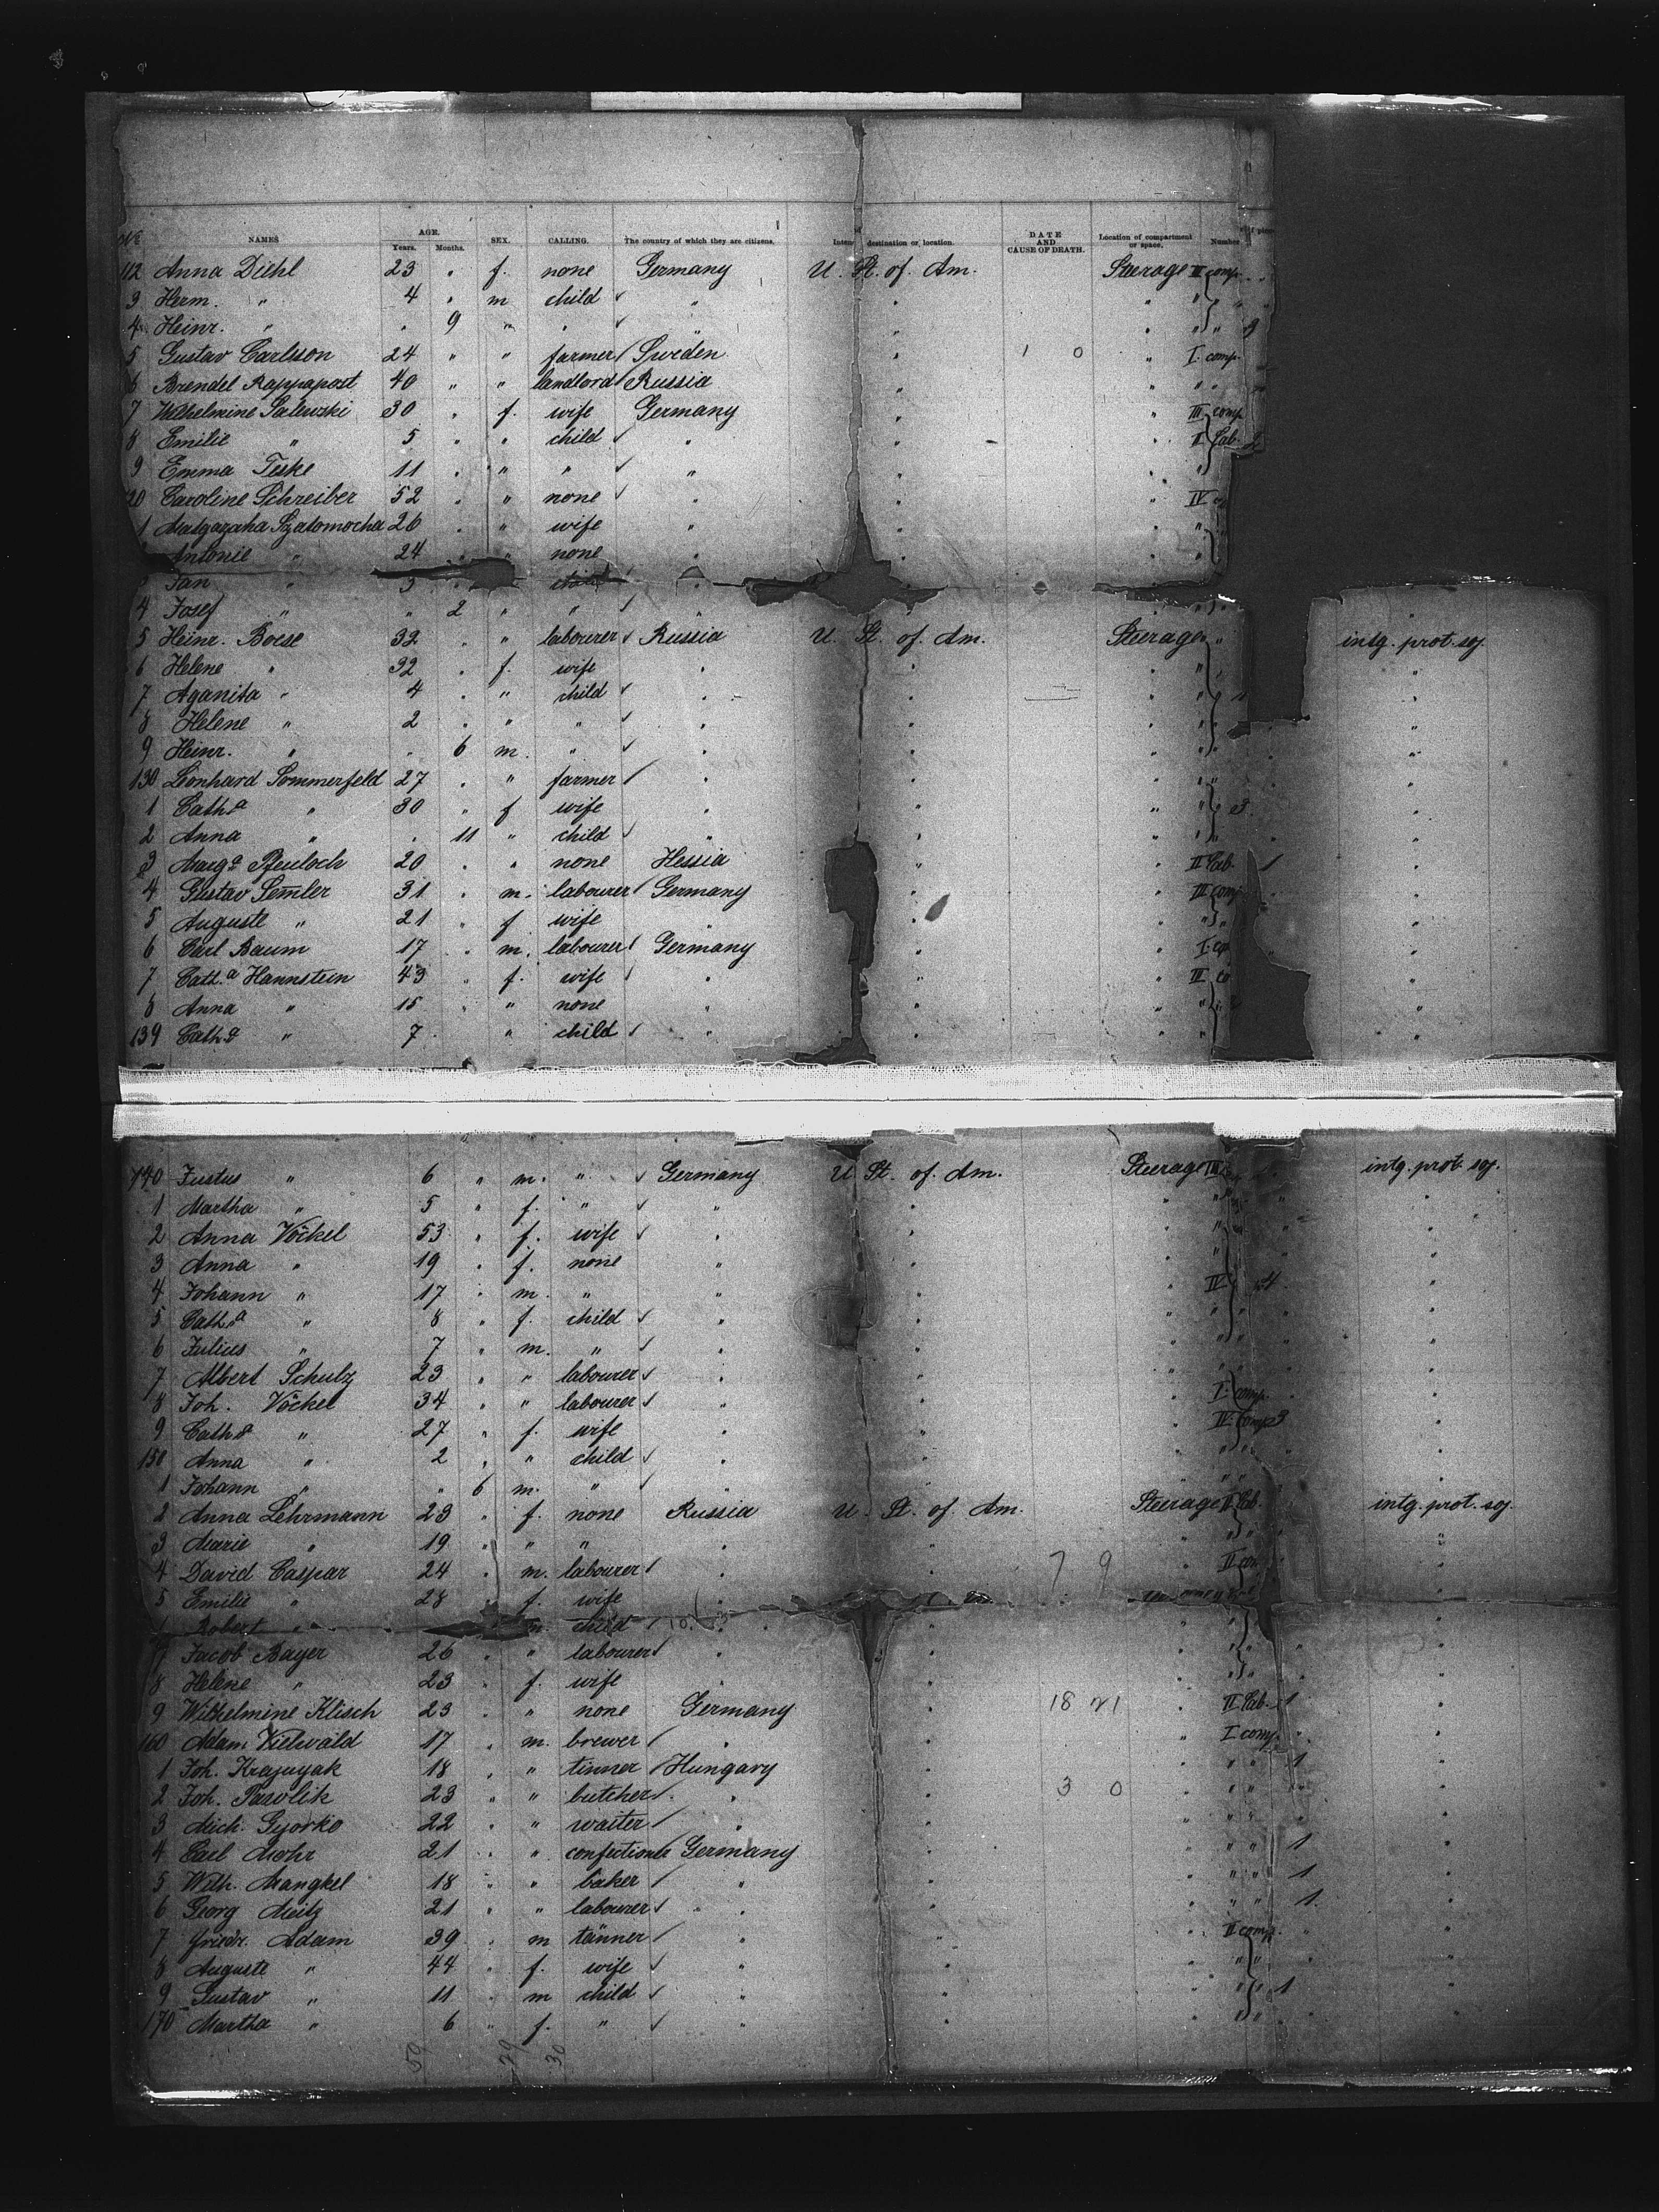 No NAMES AGE. Years. Months. SEX. CALLING. The country of which they are citizens. Intended destination or location. DATE AND CAUSE OF DEATH. Location of compartment or space. Number of pieces
112 Anna Diehl 23 " f. none Germany U. St. of. Am. Steerage II comp. "
3 Herm. " 4 " m child ✓ " " " " "
4 Heinr. " " 9 " " ✓ " " " " "
5 Gustav Carlsson 24 " " farmer ✓ Sweden " 1 0 " I. comp.
6 Brendel Rappaport 40 " " landlord ✓ Russia " " " "
7 Wilhelmine Salewski 30 " f. wife Germany " " III comp
8 Emilie " 5 " " child ✓ " " " II Cab.
9 Emma Teske 11 " " " ✓ " " " "
20 Caroline Schreiber 52 " " none ✓ " " " IV
1 26 " " wife " " " "
Antonie " 24 " " none " " " "
Jan " 3 " "
4 Josef " " 2 " " ✓ " " " "
5 Heinr. Boese 32 " " labourer ✓ Russia U. St. of. Am. Steerage " intg. prot. soj.
6 Helene " 32 " f. wife " " " " "
7 Aganita " 4 " " child ✓ " " " " "
8 Helene " 2 " " " ✓ " " " " "
9 Heinr. " " 6 m. " ✓ " " " " "
130 Leonhard Sommerfeld 27 " " farmer ✓ " " " " "
1 Cath.a " 30 " f wife " " " " 3. "
2 Anna " " 11 " child ✓ " " " " "
3 Marg.a Pfeuloch 20 " " none Hessia " " II Cab. 1 "
4 Gustav Semler 31 " m. labourer ✓ Germany " " III comp "
5 Auguste " 21 " f wife " " " " "
6 Carl Baum 17 " m. labourer ✓ Germany " " I. "
7 Cath.a Hannstein 43 " f. wife ✓ " " " III co "
8 Anna " 15 " " none " " " " "
139 Cath.a " 7 " child ✓ " " " " "
140 Justus " 6 " m. " ✓ Germany U. St. of. Am. Steerage III intg. prot. soj.
1 Martha " 5 " f. " ✓ " " " " "
2 Anna Vöckel 53 " f. wife ✓ " " " "
3 Anna " 19 " f. none " " " "
4 Johann " 17 " m. " " " IV 4 "
5 Cath.a " 8 " f. child ✓ " " " " "
6 Julius " 7 " m. " ✓ " " " "
7 Albert Schulz 23 " " labourer ✓ " " " " "
8 Joh. Vöckel 34 " " labourer ✓ " " I. comp. "
9 Cath.a " 27 " f. wife " " IV. comp 3 "
150 Anna " 2 " " child ✓ " " " " "
1 Johann " " 6 m. " ✓ " " " " "
2 Anna Lehrmann 23 " f. none Russia U. St. of. Am. Steerage II Cab. intg. prot. soj.
3 Marie " 19 " " " " " " "
4 David Caspar 24 " m. labourer ✓ " " 7 9 " II com "
5 Emilie " 28 " f. wife " "
Robert " m. child ✓ " " " "
7 Jacob Bayer 26 " " labourer ✓ " " " " "
8 Helene " 23 " f. wife " " " " "
9 Wilhelmine Klisch 23 " " none Germany " 18 21 " II Cab. 1 "
160 Adam Vielwald 17 " m. brewer ✓ " " " I comp. "
1 Joh. Krajnyak 18 " " tinner ✓ Hungary " " " " 1 "
2 Joh. Pavolik 23 " " butcher ✓ " " 3 0 " " " "
3 Mich. Gyorko 22 " " waiter ✓ " " " " " "
4 Carl Mohr 21 " " confectioner Germany " " " " 1 "
5 Wilh. Mangkel 18 " " baker ✓ " " " " " 1 "
6 Georg Meitz 21 " " labourer ✓ " " " " " 1. "
7 Friedr. Adam 39 " m tanner ✓ " " " II comp. "
8 Auguste " 44 " f. wife ✓ " " " " " "
9 Gustav " 11 " m child ✓ " " " " " 1 "
170 Martha " 6 " f. " ✓ " " " " " "
59 29 30